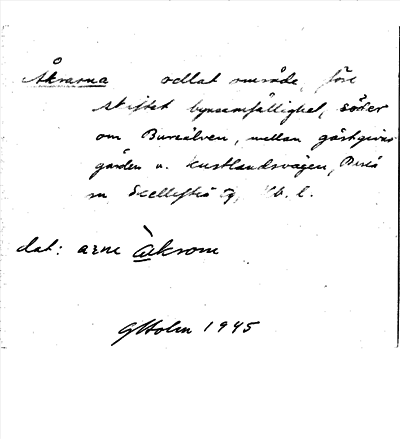 Åkrarna odlat område, före
skiftet bysamfällighet, söder
om Bureälven, mellan gästgivare
gården u. kustlandsvägen, Bureå
sn, Skellefteå Vb. l.
dat: arne àkrom
G Holm 1945